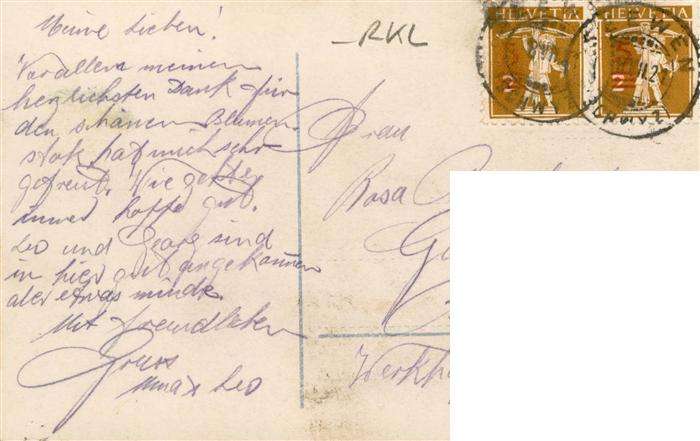 Meine Lieben!
Vor allem meinen
herzlichsten Dank für
den schönen Blumen-
stok, hat mich sehr
gefreut. Wie geht's
immer hoffe gut.
Leo und Georg sind
in hier gut angekommen
aber etwas müde.
Mit freundlichen
Gruss
Max Leo
-RKL
HELVETIA
HELVETIA
Frau
Rosa
Werkh